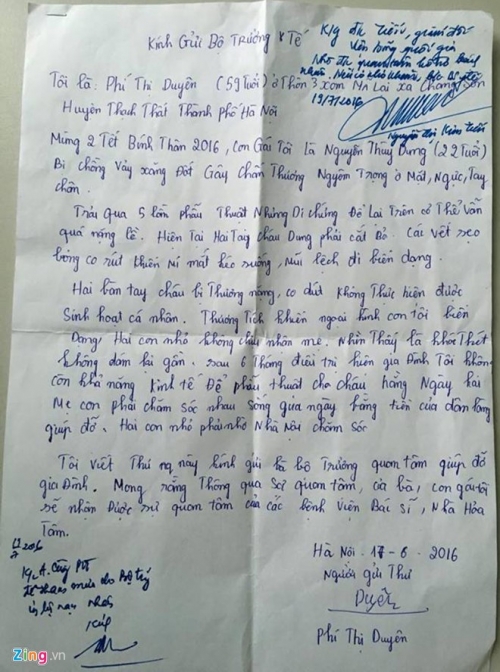 Kính Gửi Bộ Trưởng Y Tế
K/g đ/c tiến, giám đốc
viện bỏng quốc gia
19/7/2016
Nguyễn Thị Kim Tiến
Tôi là: Phí Thị Duyên (59 Tuổi) ở Thôn 3 xóm Mã Lai xã Chàng Sơn
Huyện Thạch Thất Thành phố Hà Nội
Mùng 2 Tết Bính Thân 2016, Con Gái Tôi là Nguyễn Thùy Dung (22 Tuổi)
Bị chồng Vảy xăng Đốt Gây Chấn Thương Nghiêm Trọng ở Mắt, Ngực, Tay
chân.
Trải qua 5 lần phẫu Thuật Nhưng Di chứng Để Lại Trên cơ Thể Vẫn
quá nặng lề. Hiện Tại Hai Tay cháu Dung phải cắt Bỏ cái vết sẹo
bỏng co rút khiến Mí mắt kéo xuống, mũi lệch đi biến dạng.
Hai bàn tay cháu bị Thương nặng, co rút không Thực hiện được
Sinh hoạt cá nhân. Thương Tích khiến ngoại hình con tôi biến
Dạng, Hai con nhỏ không chịu nhận mẹ. Nhìn Thấy là khóc Thét
không dám lại gần. sau 6 Tháng điều trị hiện gia Đình Tôi không
còn khả năng Kinh tế Để phẫu thuật cho cháu hằng Ngày hai
Mẹ con phải chăm sóc nhau sống qua ngày bằng tiền của dân làng
giúp đỡ. Hai con nhỏ phải nhờ Nhà Nội chăm sóc
Tôi viết Thư này kính gửi bà bộ Trưởng quan tâm giúp đỡ
gia Đình. Mong rằng Thông qua Sự quan tâm, của bà, con gái tôi
sẽ nhận Được sự quan tâm của các bệnh viện Bác sĩ, Nhà Hảo
Tâm.
Hà Nội. 17-6-2016
Người gửi Thư
Duyên
Phí Thị Duyên
2016
Zing.vn